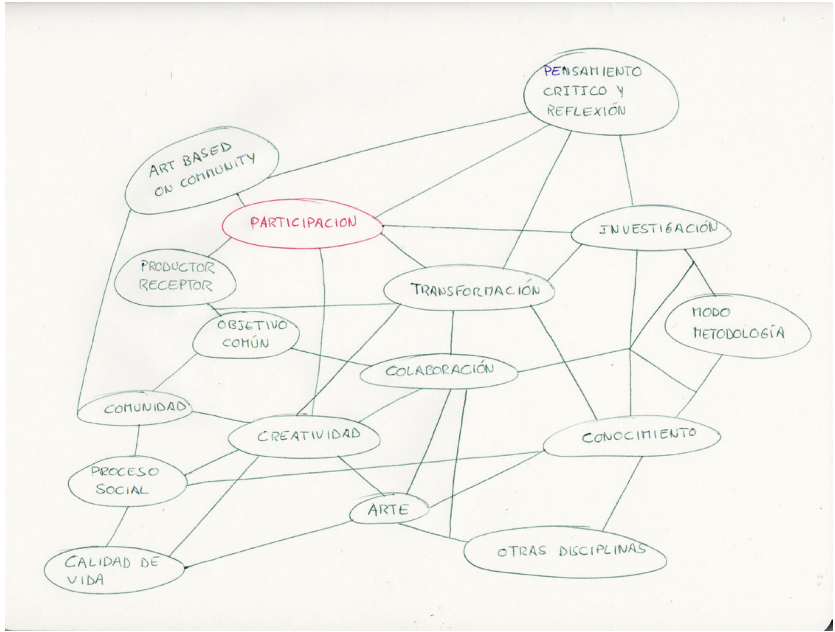 PENSAMIENTO
CRITICO Y
REFLEXIÓN
ART BASED
ON COMMUNITY
PARTICIPACION
INVESTIGACIÓN
PRODUCTOR
RECEPTOR
TRANSFORMACIÓN
MODO
METODOLOGÍA
OBJETIVO
COMÚN
COLABORACIÓN
COMUNIDAD
CREATIVIDAD
CONOCIMIENTO
PROCESO
SOCIAL
ARTE
OTRAS DISCIPLINAS
CALIDAD DE
VIDA